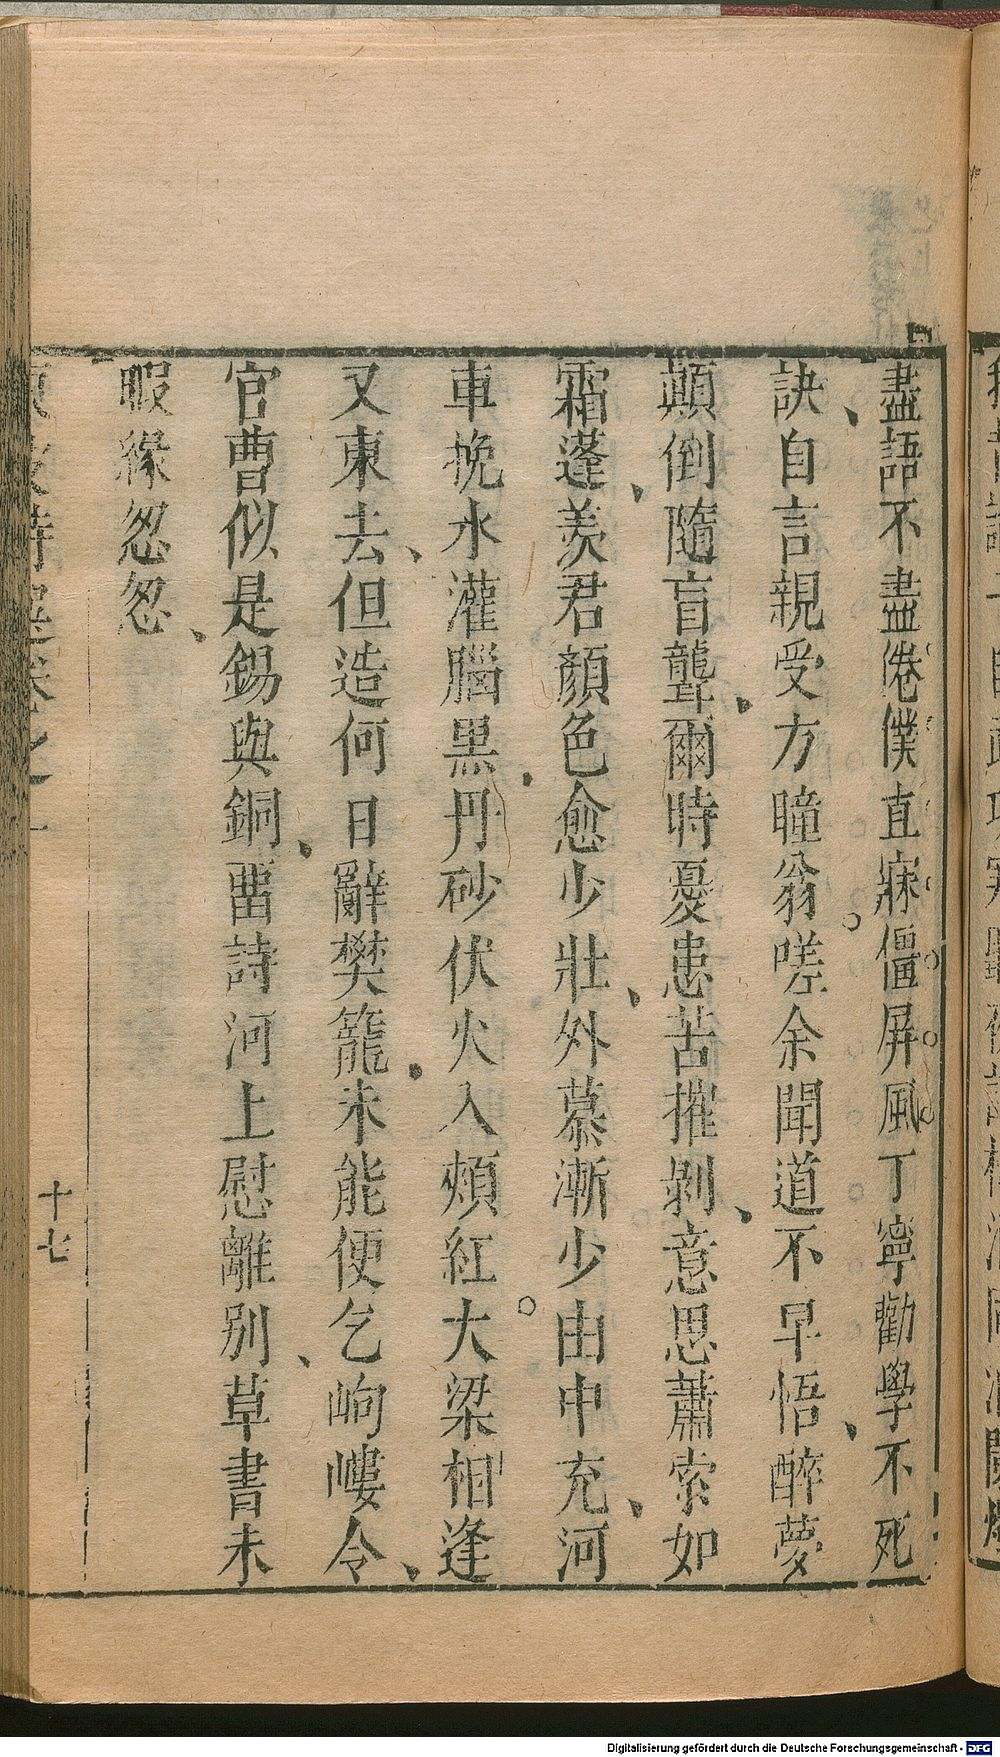 盡語不盡倦僕直寐僵屏風丁寧勸學不死
訣自言親受方瞳翁嗟余聞道不早悟醉夢
顛倒隨盲聾爾時憂患苦摧剝意思蕭索如
霜蓬羡君顏色愈少壯外慕漸少由中充河
車挽水灌腦黑丹砂伏火入頰紅大梁相逢
又東去但造何日辭樊籠未能便乞岣嶁令
官曹似是錫與銅畱詩河上慰離別草書未
暇緣怱怱
十七
Digitalisierung gefördert durch die Deutsche Forschungsgemeinschaft - DFG